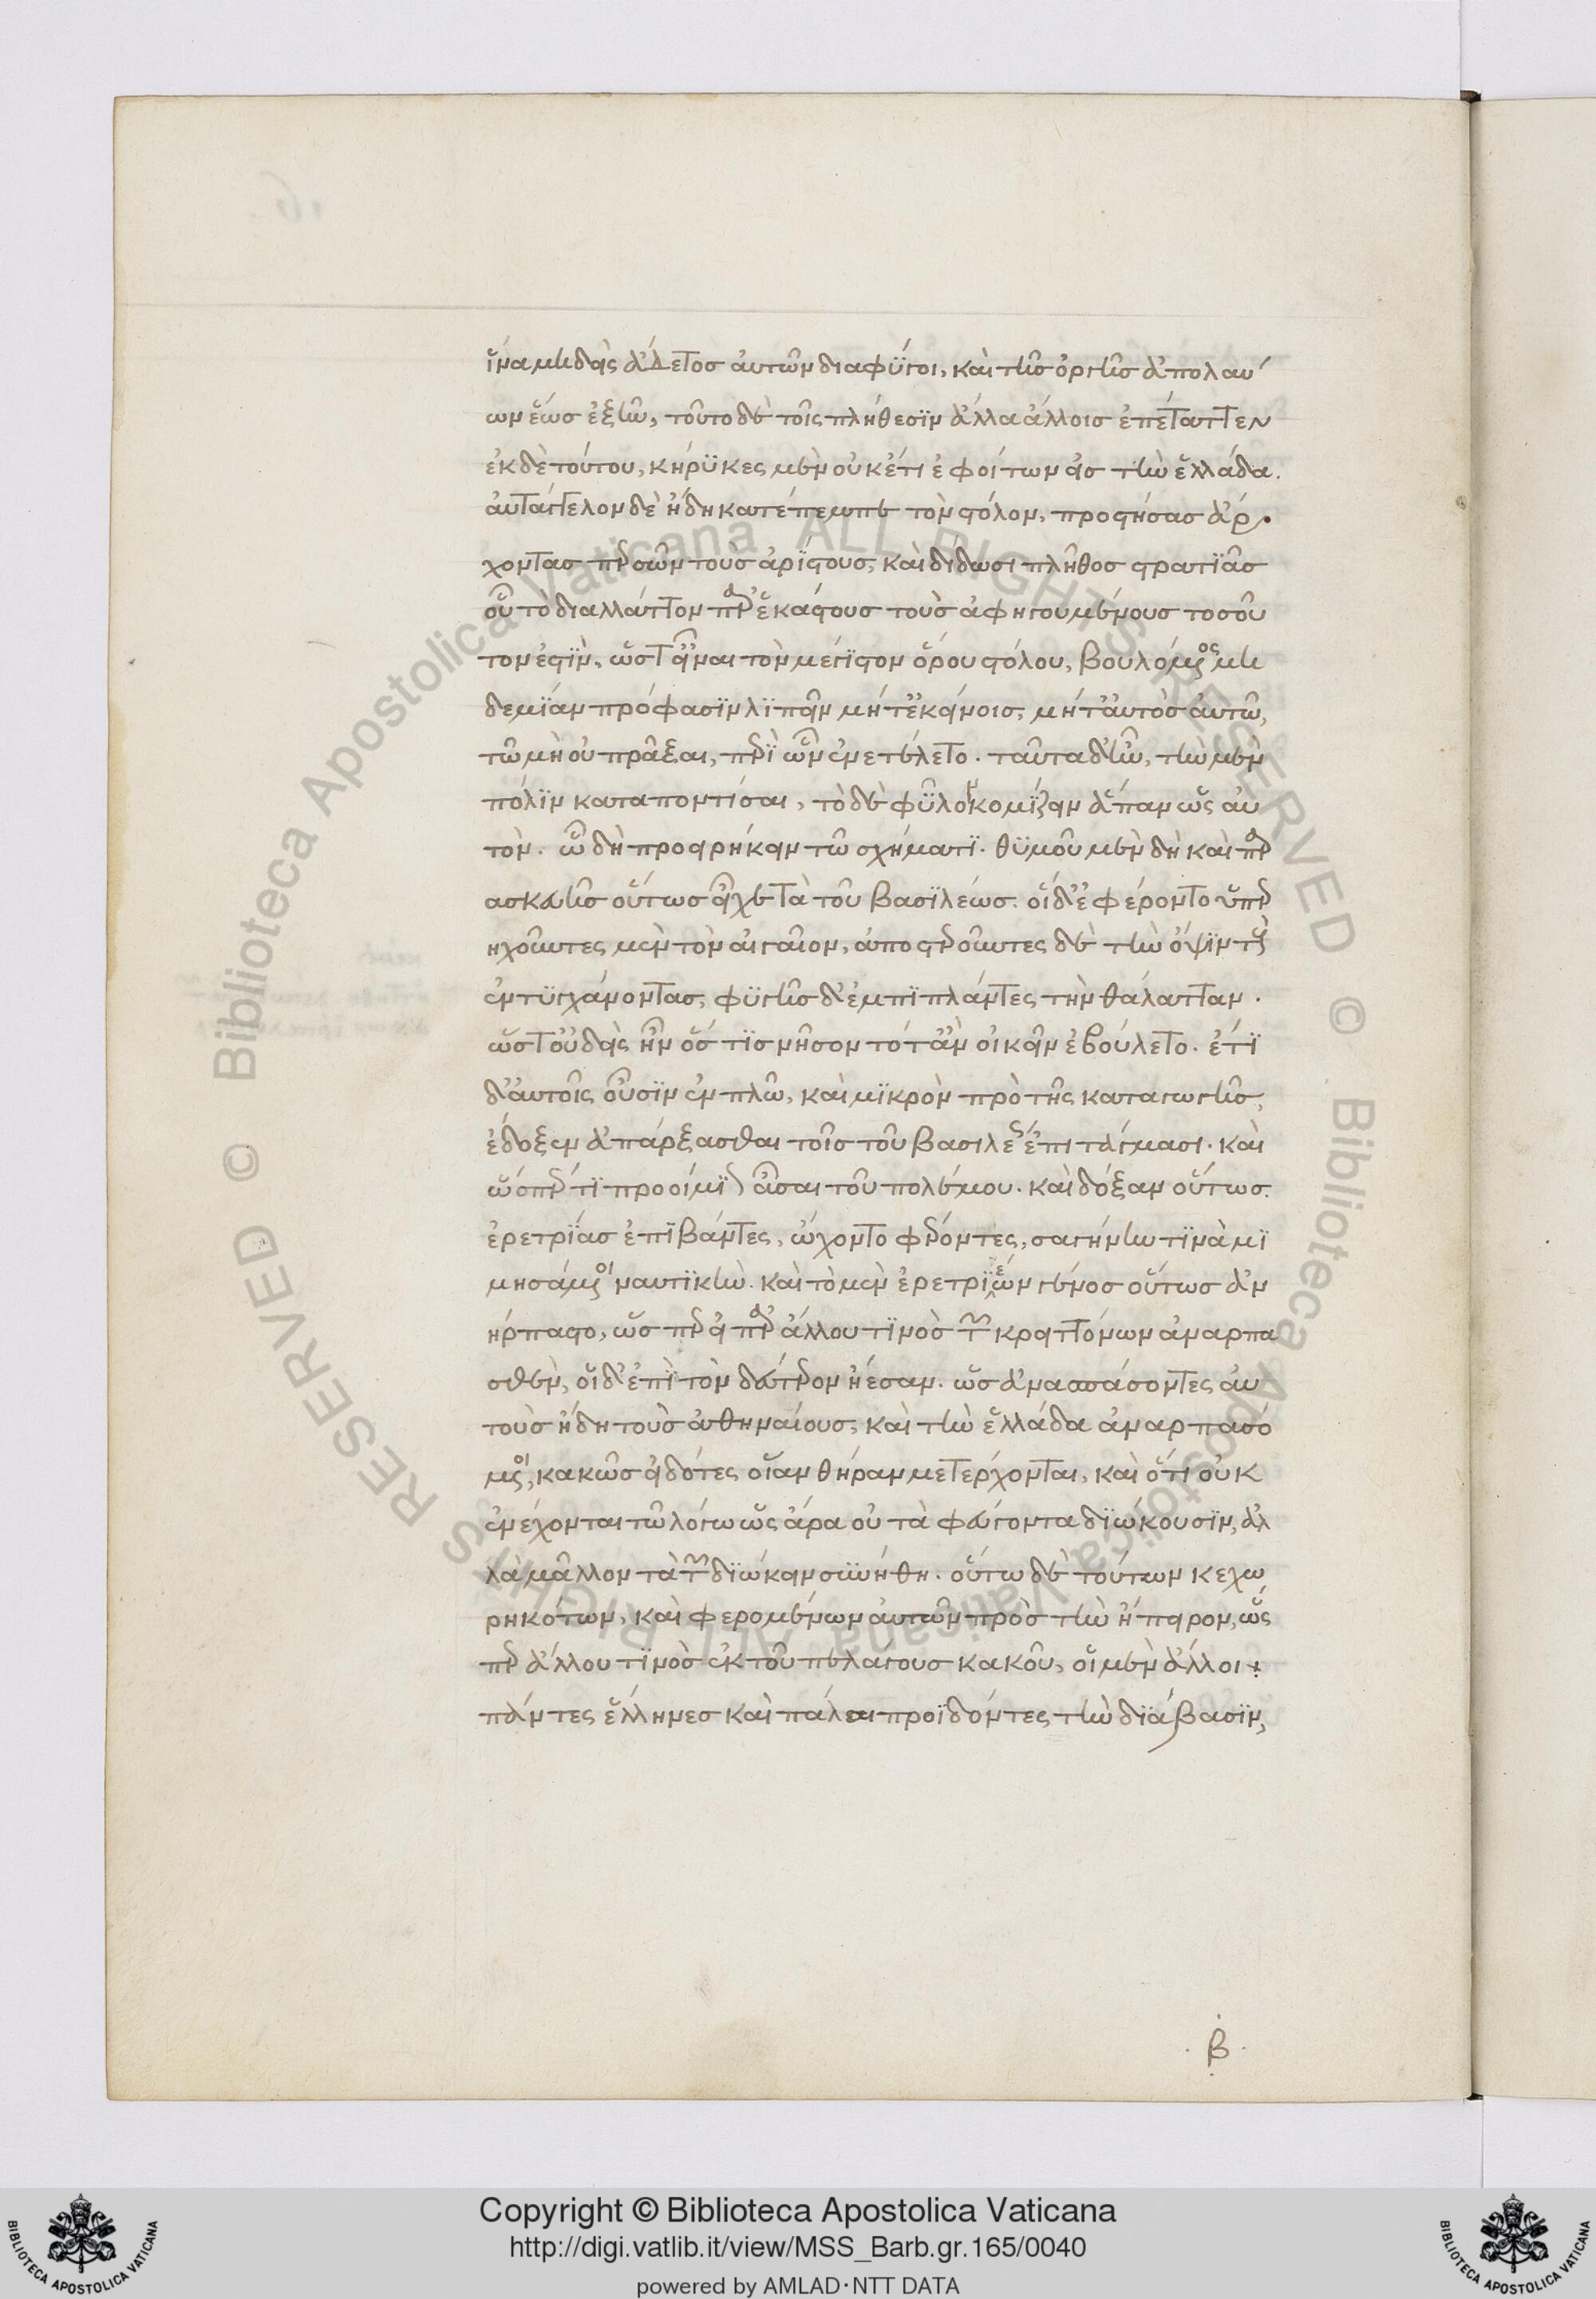 ἵνα μηδεὶς ἀδεῖτος αὐτῶν διαφύγοι, καὶ τῆς ὀργῆς ἀπολαύ
ων ἕως ἐξῆν, τοῦτο δὲ τοῖς πλήθεσϊν ἄλλα ἄλλοις ἐπέταττεν
ἐκ δὲ τούτου, κήρϋκες μὲν οὐκέτι ἐφοίτων εἰς τὴν ἑλλάδα.
αὐτάγγελον δὲ ἤδη κατέπεμπε τὸν στόλον, προστήσας ἄρ
χοντας περσῶν τοὺς ἀρίστους, καὶ δίδωσι πλῆθος στρατϊᾶς
οὗ τὸ διαλλάττον παρ' ἑκάστους τοὺς ἀφηγουμένους τοσοῦ
τον ἐστϊν, ὥστ' εἶναι τὸν μέγϊστον ὅρου στόλου, βουλόμενος μη
δεμΐαν πρόφασϊν λϊπεῖν μήτ' ἐκείνοις, μήτ' αὐτὸς αὐτῶ,
τῶ μὴ οὐ πρᾶξαι, περϊ ὧν ἐνετέλετο. ταῦτα δ' ἦν, τὴν μὲν
πόλϊν καταποντίσαι, τὸ δὲ φῦλον κομΐζειν ἅπαν ὡς αὐ
τὸν. ὧ δὴ προειρήκειν τῶ σχήματϊ. θϋμοῦ μὲν δὴ καὶ παρ
ασκευῆς οὕτως εἶχε τὰ τοῦ βασϊλέως. οἵ δ' ἐφέροντο ὑπερ
ηχοῦντες μὲν τὸν αἰγαῖον, ἀποστεροῦντες δὲ τὴν ὄψϊν τοὺς
ἐντϋγχάνοντας, φϋγῆς δ' ἐμπϊπλάντες τὴν θάλατταν.
ὥστ' οὐδεὶς ἦν ὅς τϊς νῆσον τότ' ἂν οἰκεῖν ἐβούλετο. ἔτϊ
δ' αὐτοῖς οὖσϊν ἐν πλῶ, καὶ μϊκρὸν πρὸ τῆς καταγωγῆς,
ἔδοξεν ἀπάρξασθαι τοῖς τοῦ βασιλέως ἐπιτάγμασι. καὶ
ὥσπερ τϊ προοίμϊον ᾆσαι τοῦ πολέμου. καὶ δόξαν οὕτως.
ἐρετρΐας ἐπϊβάντες, ὤχοντο φέροντες, σαγήνην τϊνὰ μϊ
μησάμενοι ναυτϊκὴν. καὶ τὸ μὲν ἐρετρϊέων γένος οὕτως ἀν
ήρπαστο, ὥσπερ εἰ παρ' ἄλλου τϊνὸς τῶν κρειττόνων ἀναρπα
σθὲν, οἵ δ' ἐπὶ τὸν δεύτερον ἤεσαν. ὡς ἀνασπάσοντες αὐ
τοὺς ἤδη τοὺς ἀθηναίους, καὶ τὴν ἑλλάδα ἀναρπασό
μενοι, κακῶς εἰδότες οἵαν θήραν μετέρχονται, καὶ ὅτι οὐκ
ἐνέχονται τῶ λόγω ὡς ἄρα οὐ τὰ φεύγοντα δϊώκουσϊν, ἀλ
λὰ μᾶλλον τὰ τῶν δϊώκειν συνήθη. οὕτω δὲ τούτων κεχω
ρηκότων, καὶ φερομένων αὐτῶν πρὸς τὴν ἤπειρον, ὥς
περ ἄλλου τϊνὸς ἐκ τοῦ πελάγους κακοῦ, οἵ μὲν ἄλλοι
πάντες ἕλληνες καὶ πάλαι προϊδόντες τὴν διάβασϊν,
β
Copyright © Biblioteca Apostolica Vaticana
http://digi.vatlib.it/view/MSS_Barb.gr.165/0040
powered by AMLAD·NTT DATA